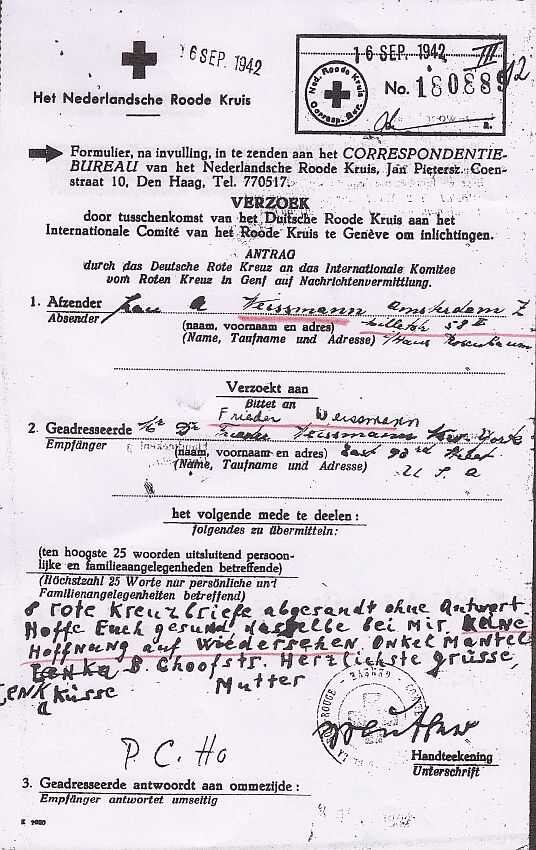 16 SEP. 1942
16 SEP. 1942 III
12
Ned. Roode Kruis
Corresp. Bur.
No. 180889
Het Nederlandsche Roode Kruis
Formulier, na invulling, in te zenden aan het CORRESPONDENTIE-
BUREAU van het Nederlandsche Roode Kruis, Jan Pietersz. Coen-
straat 10, Den Haag, Tel. 770517.
VERZOEK
door tusschenkomst van het Duitsche Roode Kruis aan het
Internationale Comité van het Roode Kruis te Genève om inlichtingen.
ANTRAG
durch das Deutsche Rote Kreuz an das Internationale Komitee
vom Roten Kreuz in Genf auf Nachrichtenvermittlung.
1. Afzender Frau A Weissmann Amsterdam Z
Absender
(naam, voornaam en adres) 58 II
(Name, Taufname und Adresse) Haus Rosenbaum
Verzoekt aan
Bittet an
Frieder Weissmann
2. Geadresseerde Mr Dr Frieder Weissmann New York
Empfänger
(naam, voornaam en adres) East 93rd Street
(Name, Taufname und Adresse) U S A
het volgende mede te deelen:
folgendes zu übermitteln:
(ten hoogste 25 woorden uitsluitend persoon-
lijke en familieaangelegenheden betreffende)
(Höchstzahl 25 Worte nur persönliche und
Familienangelegenheiten betreffend)
8 rote Kreuzbriefe abgesandt ohne Antwort
Hoffe Euch gesund dasselbe bei Mir. Keine
Hoffnung auf Wiedersehen. Onkel Mantel
B. Choofstr. Herzlichste grüsse,
Küsse Mutter
P. C. Ho
Handteekening
Unterschrift
3. Geadresseerde antwoordt aan ommezijde:
Empfänger antwortet umseitig